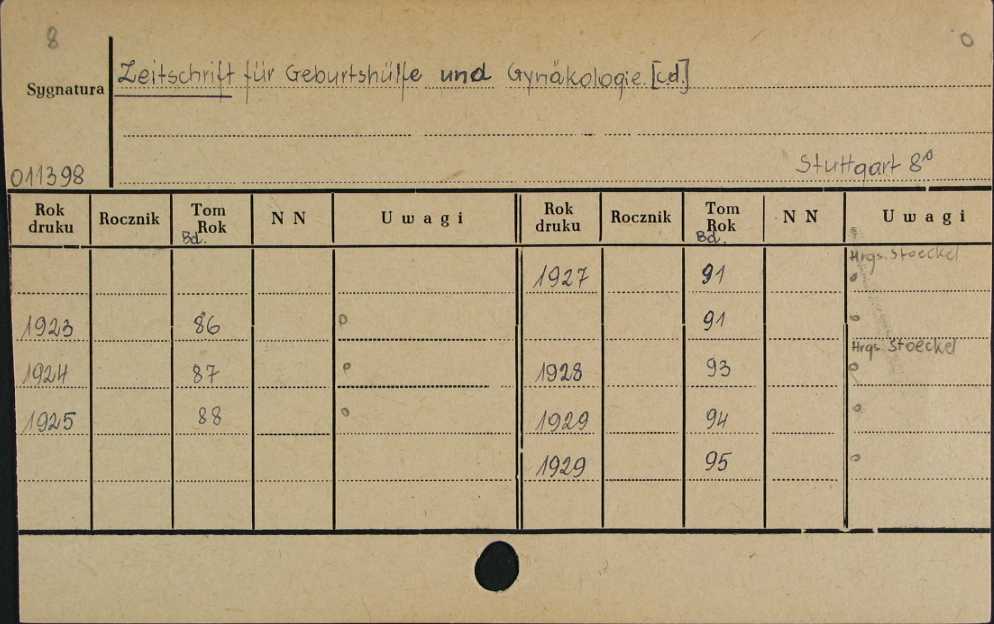 8
o
Sygnatura
Zeitschrift für Geburtshülfe und Gynäkologie. [cd.]
011398
Stuttgart 8°
Rok druku Rocznik Tom Rok Bd. N N Uwagi Rok druku Rocznik Tom Rok Bd. N N Uwagi
Hrgs. Stoeckel
1927 91 o
1923 86 o 91 o
Hrgs. Stoeckel
1924 87 o 1928 93 o
1925 88 o 1929 94 o
1929 95 o